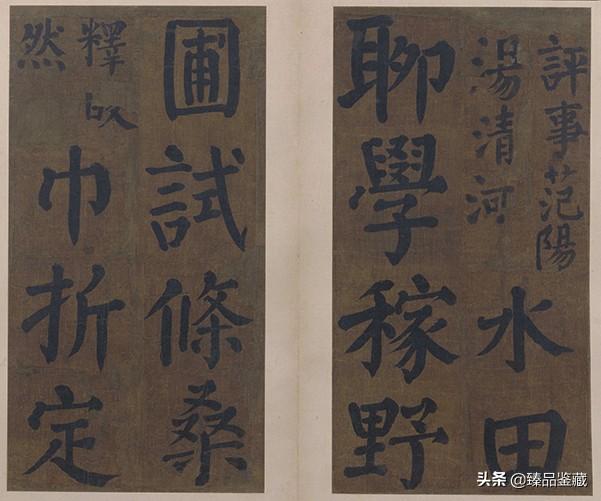 評事范陽
湯清河
水田
聊學稼野
圃試條桑
釋
然
巾折定
头条 @臻品鉴藏